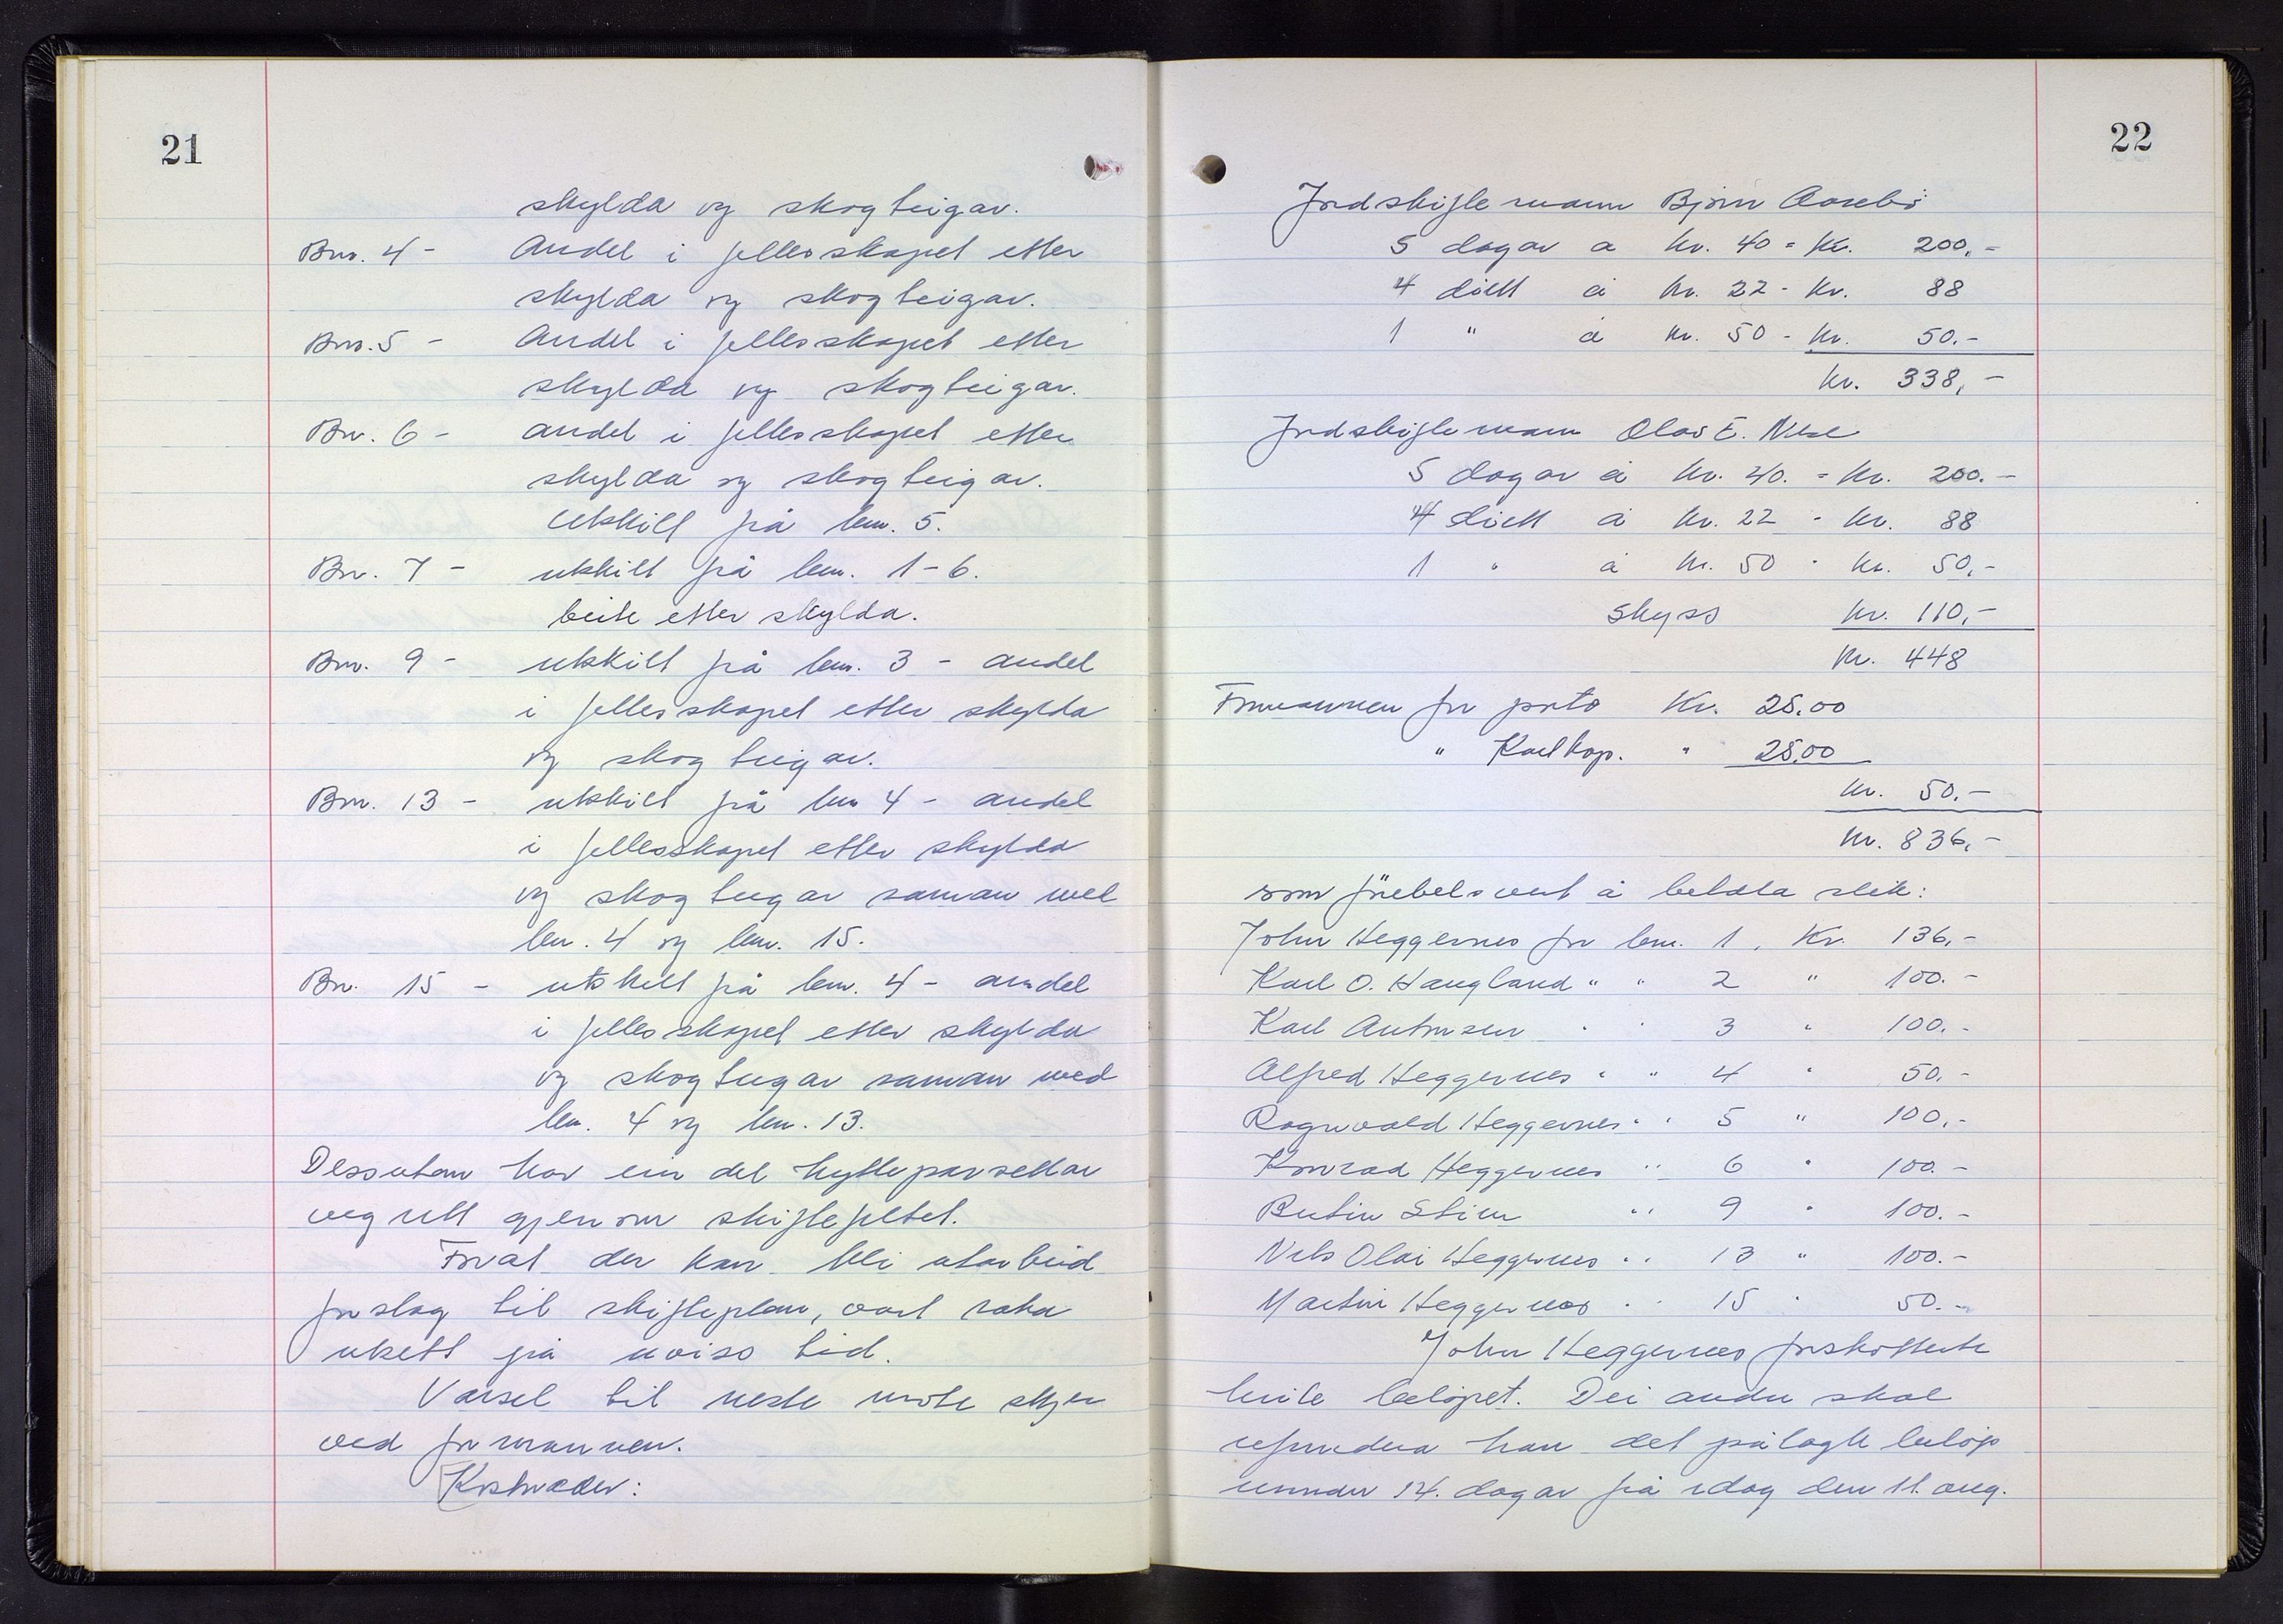 21
skylda og skogteigar.
Bnr. 4 - Andel i fellesskapet etter
skylda og skogteigar.
Bnr. 5 - Andel i fellesskapet etter
skylda og skogteigar.
Bnr. 6 - andel i fellesskapet etter
skylda og skogteigar.
Utskilt frå bnr. 5.
Bnr. 7 - utskilt frå bnr. 1-6.
beite etter skylda.
Bnr. 9 - utskilt frå bnr. 3 - andel
i fellesskapet etter skylda
og skogteigar.
Bnr. 13 - utskilt frå bnr 4 - andel
i fellesskapet etter skylda
og skogteigar saman med
bnr. 4 og bnr. 15.
Bnr. 15 - utskilt frå bnr. 4 - andel
i fellesskapet etter skylda
og skogteigar saman med
bnr. 4 og bnr. 13.
Dessutan har ein del hytteparsellar
vegrett gjenom skiftefeltet.
Forat der kan bli utarbeid
forslag til skifteplan, vart saka
utsett på uviss tid.
Varsel til neste møte skjer
ved formannen.
Kostnader:
22
Jordskiftemann Bjørn Aasebø
5 dagar a kr. 40 = kr. 200,-
4 diett á kr. 22 - kr. 88
1 " á kr. 50 - kr. 50.-
kr. 338,-
Jordskiftemann Olav E. Nese
5 dagar á kr. 40. = kr. 200.-
4 diett á kr. 22 - kr. 88
1 " á kr. 50 - kr. 50,-
Skyss kr. 110,-
kr. 448
Formannen for porto Kr. 25,00
" Kartkop. " 25,00
kr. 50,-
kr. 836,-
som førebels vert å betala slik:
John Heggernes for bnr. 1, Kr. 136,-
Karl O. Haugland " " 2 " 100.-
Karl Antonsen " " 3 " 100.-
Alfred Heggernes " " 4 " 50.-
Rognvald Heggernes " " 5 " 100,-
Konrad Heggernes " " 6 " 100.-
Stien " " 9 " 100.-
Nils Olai Heggernes " " 13 " 100.-
Martin Heggernes " " 15 " 50.-
John Heggernes forskotterte
heile beløpet. Dei andre skal
refundera han det pålagte beløp
innen 14. dagar frå idag den 11. aug.